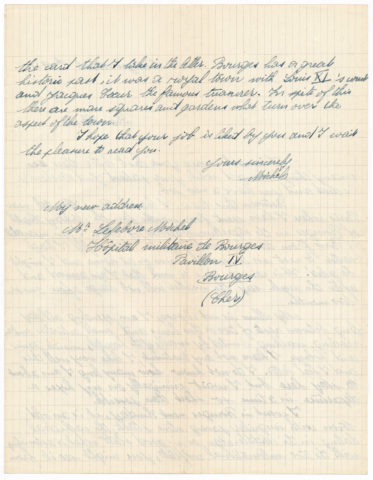 the card that I take in the letter. Bourges has a great
historic past, it was a royal town with Louis XI's court
and Jacques Coeur the famous treasurer. In spite of this
there are many squares and gardens what turn over the
aspect of the town.
I hope that your job is liked by you and I wait
the pleasure to read you.
Yours sincerely
Michel
My new address
Mr Lefebvre Michel
Hôpital militaire de Bourges
Pavillon IV.
Bourges
(Cher)